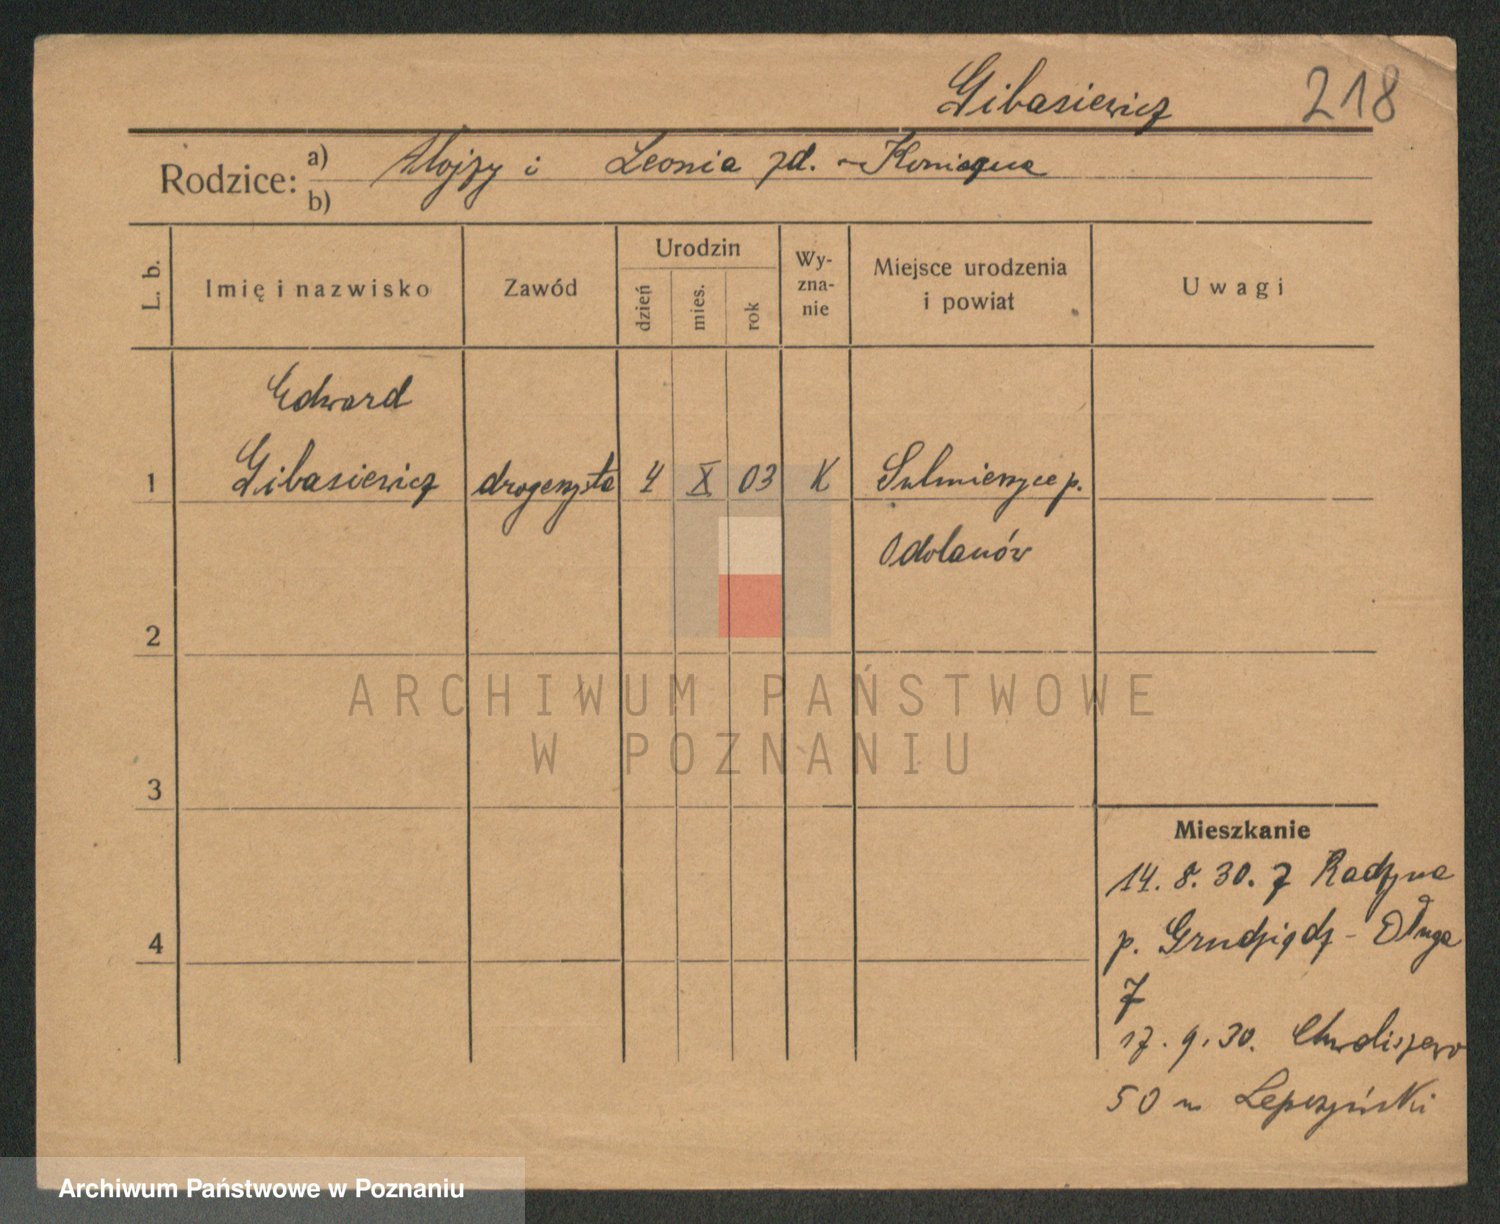 Gibasiewicz 218
Rodzice: a) Alojzy i Leonia zd. Konieczna
b)
L. b. Imię i nazwisko Zawód Urodzin dzień mies. rok Wy-zna-nie Miejsce urodzenia i powiat Uwagi
Edward
1 Gibasiewicz drogerzysta 4 X 03 K Sulmierzyce p.
Odolanów
2
ARCHIWUM PAŃSTWOWE
W POZNANIU
3
Mieszkanie
14. 8. 30. z Radzyna
4 p. Grudziądz - Długa
7
17. 9. 30. Chwaliszewo
50 m Lepczyński
Archiwum Państwowe w Poznaniu